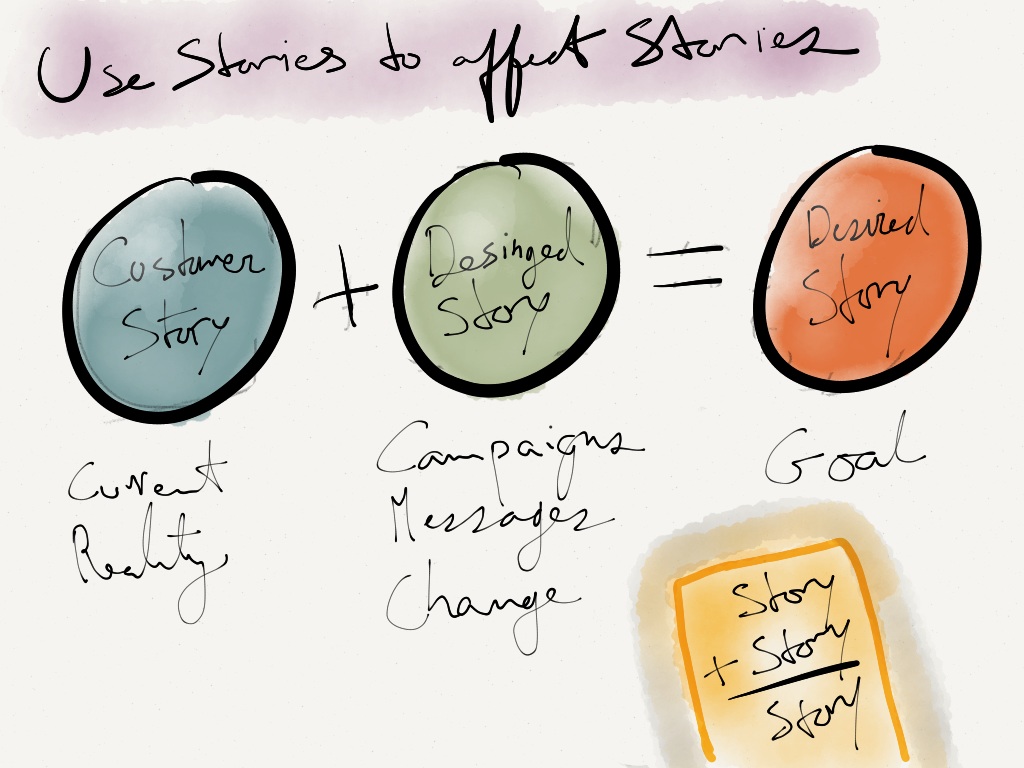 Use Stories to affect Stories
Customer
Story
+
Desinged
Story
=
Desired
Story
Current
Reality
Campaigns
Messages
Change
Goal
Story
+ Story
Story